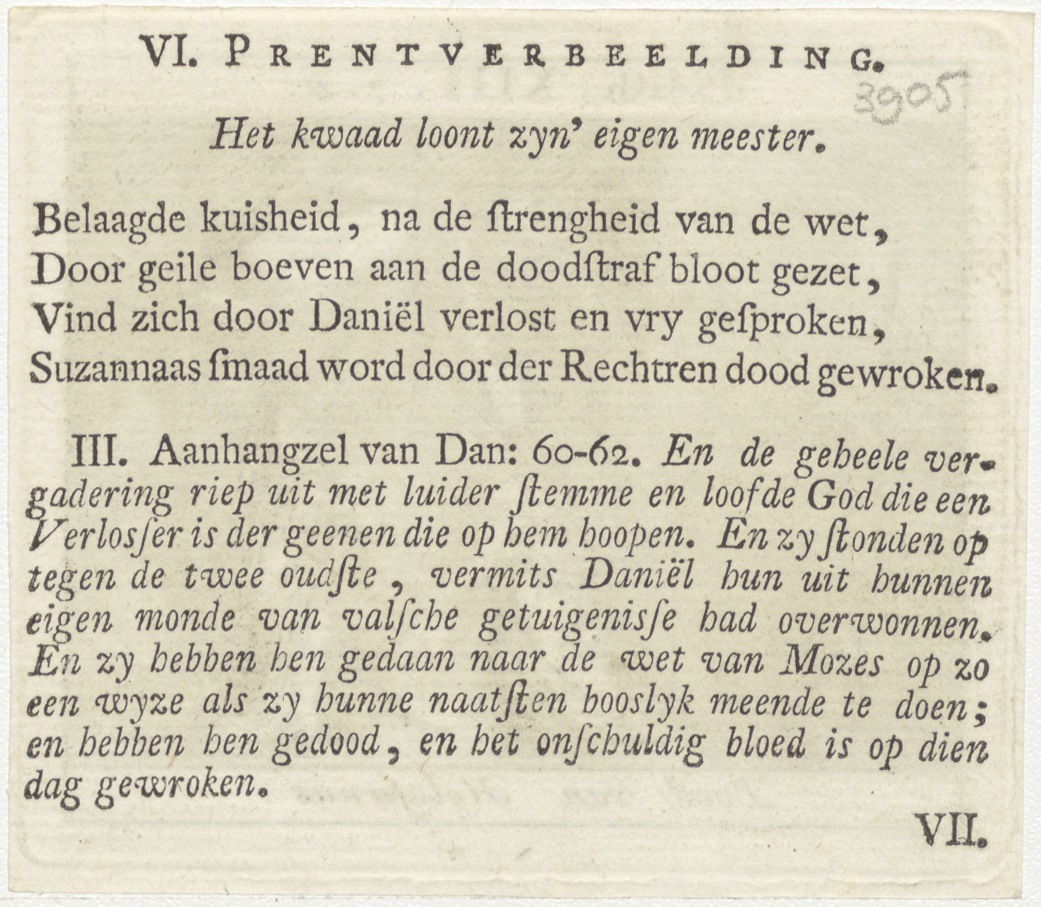 VI. PRENTVERBEELDING.
3905
Het kwaad loont zyn' eigen meester.
Belaagde kuisheid, na de ſtrengheid van de wet,
Door geile boeven aan de doodſtraf bloot gezet,
Vind zich door Daniël verlost en vry geſproken,
Suzannaas ſmaad word door der Rechtren dood gewroken.
III. Aanhangzel van Dan: 60-62. En de geheele ver-
gadering riep uit met luider ſtemme en loofde God die een
Verlosſer is der geenen die op hem hoopen. En zy ſtonden op
tegen de twee oudſte, vermits Daniël hun uit hunnen
eigen monde van valſche getuigenisſe had overwonnen.
En zy hebben hen gedaan naar de wet van Mozes op zo
een wyze als zy hunne naatſten booslyk meende te doen;
en hebben hen gedood, en het onſchuldig bloed is op dien
dag gewroken.
VII.